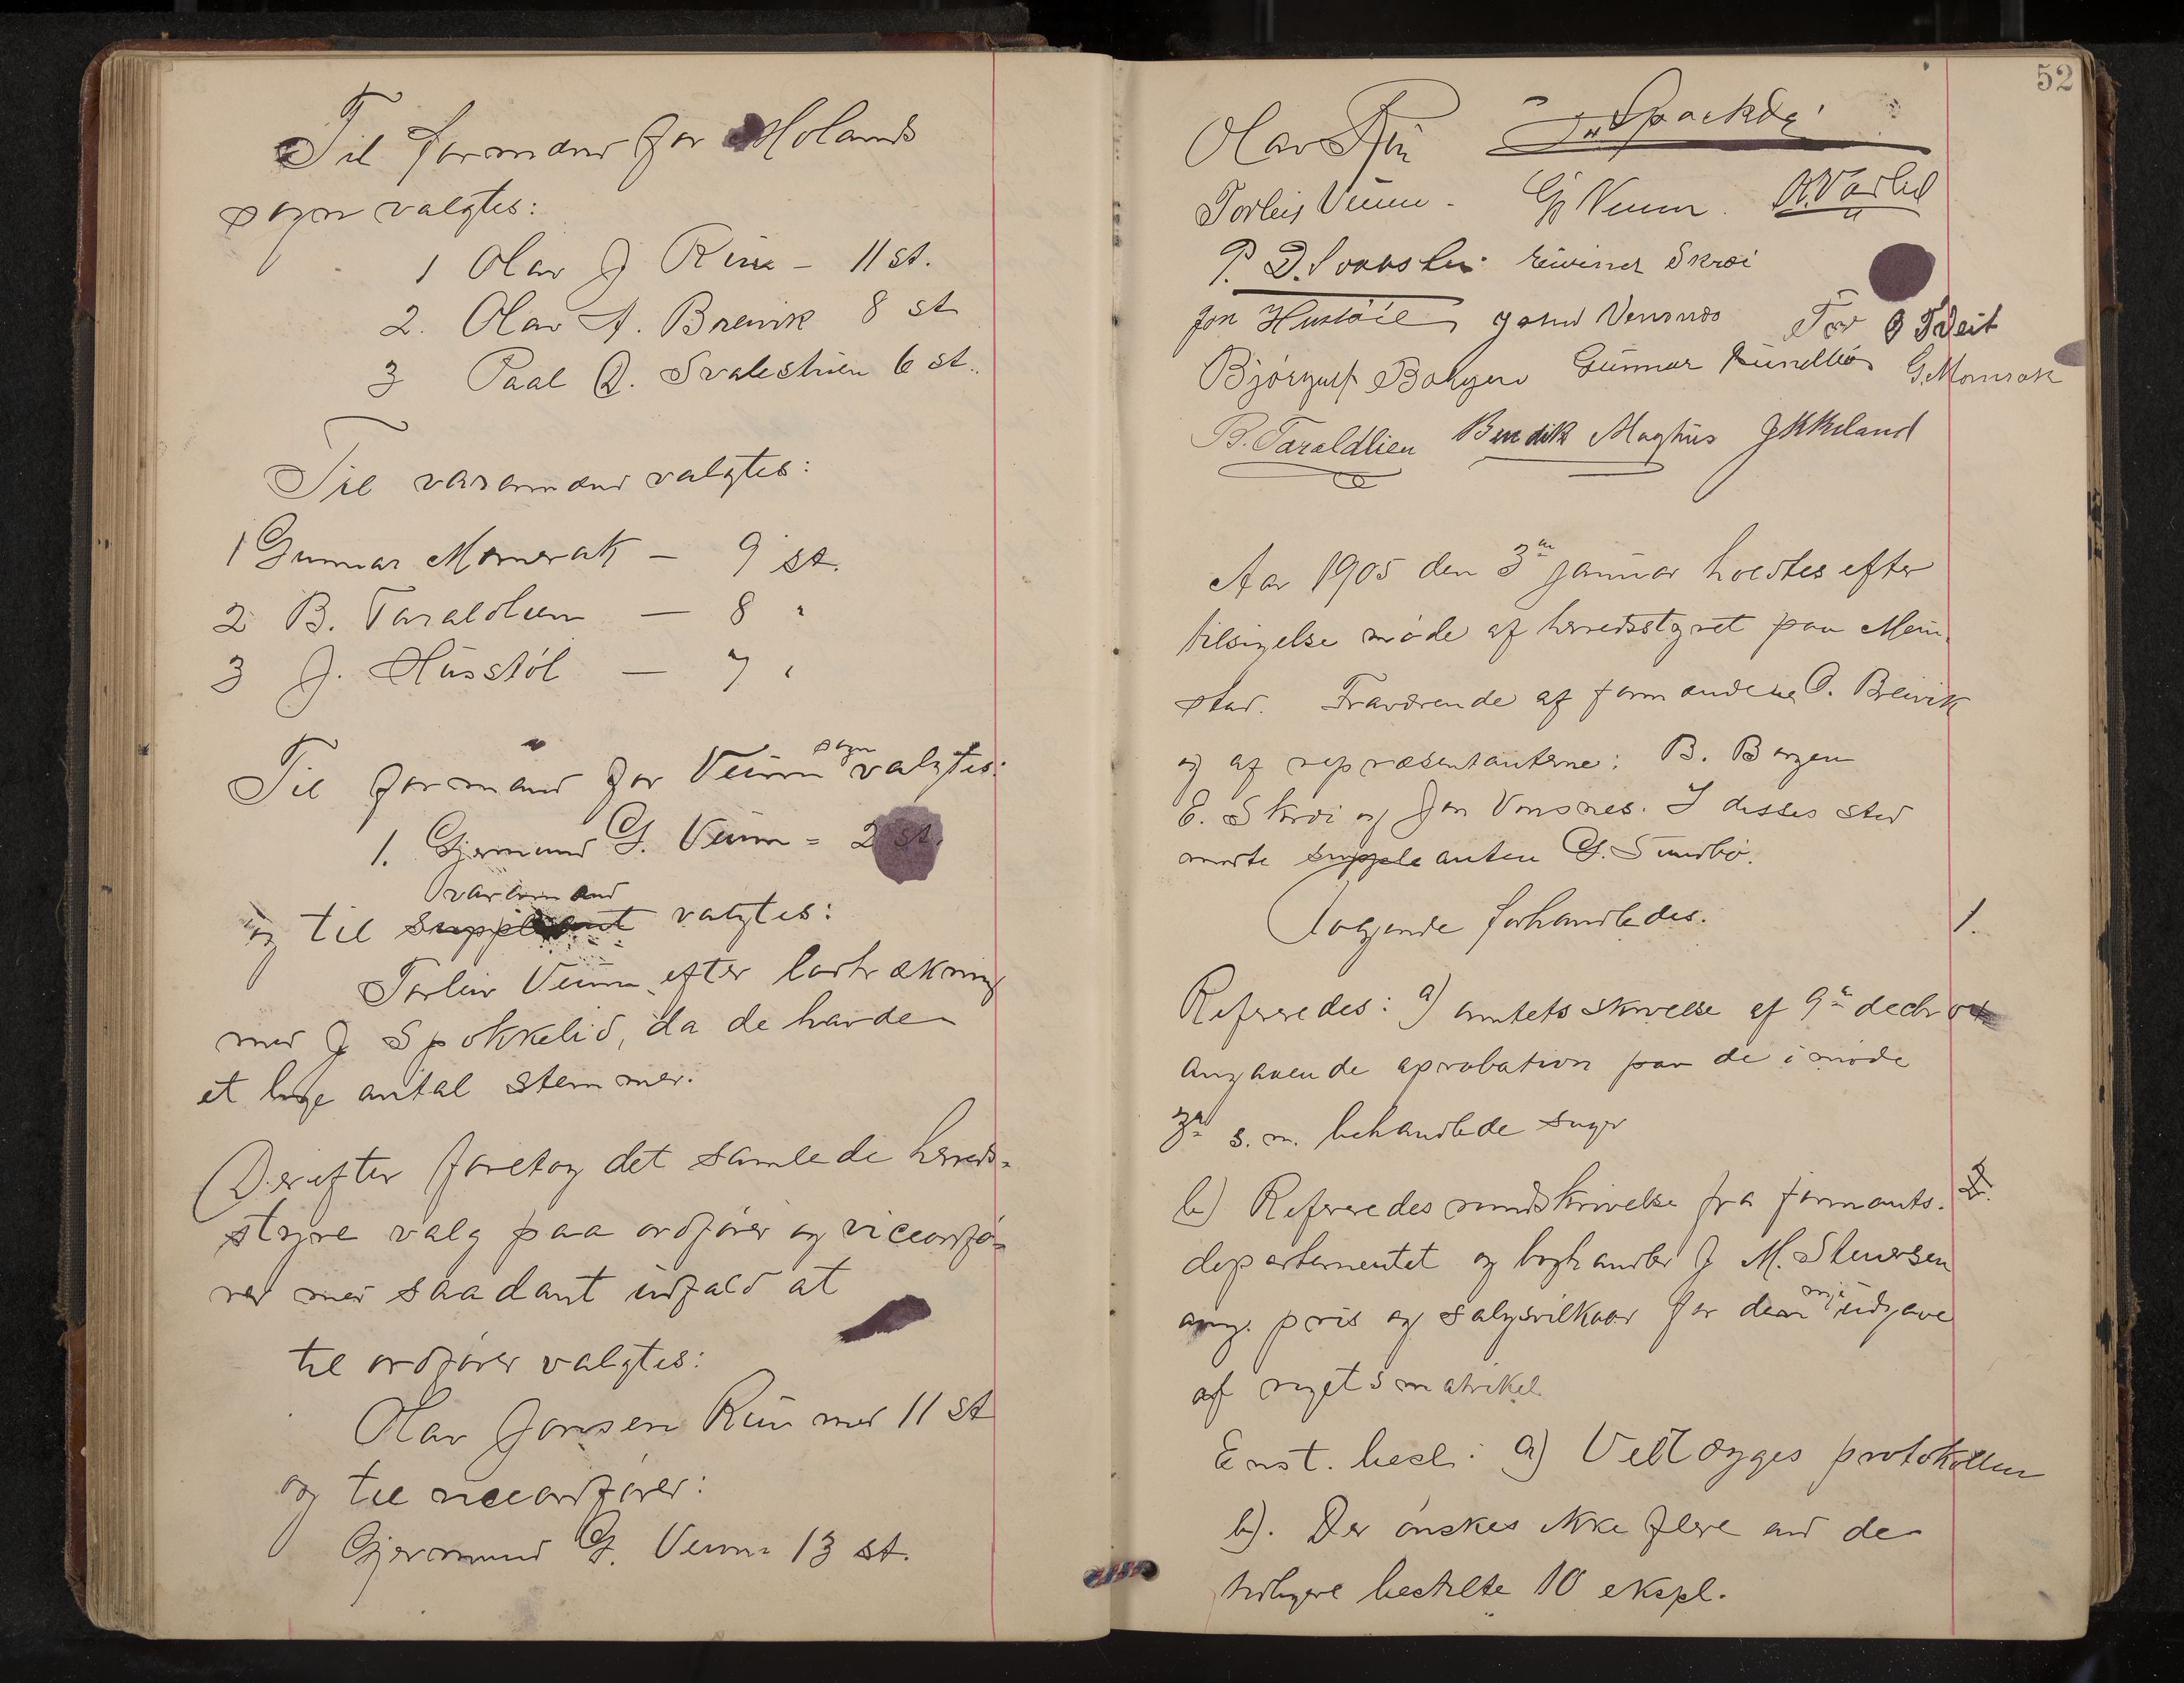 Til formænd for Molands
sogn valgtes:
1 Olav J Riur – 11 st.
2. Olav A. Breivik 8 st
3 Paal D. Svalestuen 6 st.
Til varamænd valgtes:
1 Gunnar Momrak – 9 st.
2 B. Taraldlien – 8 "
3 J. Husstöl – 7 "
Til formand for Veum sogn valgtes:
1. Gjermund G. Veum = 2 st.
varamand
og til suppleant valgtes:
Torleiv Veum efter lodtrækning
med J Spokkelid, da de havde
et lige antal stemmer.
Derefter foretog det samlede herreds-
styre valg paa ordfører og viceordfø-
rer med saadant udfald at
til ordfører valgtes:
Olav Jonsen Riu med 11 st
og til viceordfører:
Gjermund G. Veum 13 st.
52
Olav Riu
Torleif Veum. G Veum.
Eivind Skrei
Jon Husstöl Tor Tveit
Gunnar Sundbö G. Momrak
B. Taraldlien Bendik Maghus
Aar 1905 den 3die januar holdtes efter
tilsigelse møde af herredsstyret paa Mem-
stad. Fraværende af formændene O. Breivik
og af repræsentanterne: B. Borgen
E. Skrei og Jon Vonsnes. I disses sted
mødte suppleanten G. Sundbø.
Følgende forhandledes.
1.
Refereredes: a) amtets skrivelse af 9de decbr
angaaende aprobation paa de i møde
3de s. m. behandlede sager
b) Refereredes rundskrivelse fra finants- 2.
departementet og boghandler J M. Stenersen
ang. pris og salgsvilkaar for den ny udgave
af rigets matrikel
Enst. besl: a) Vedlægges protokollen
b). Der ønskes ikke flere end de
tidligere bestilte 10 ekspl.